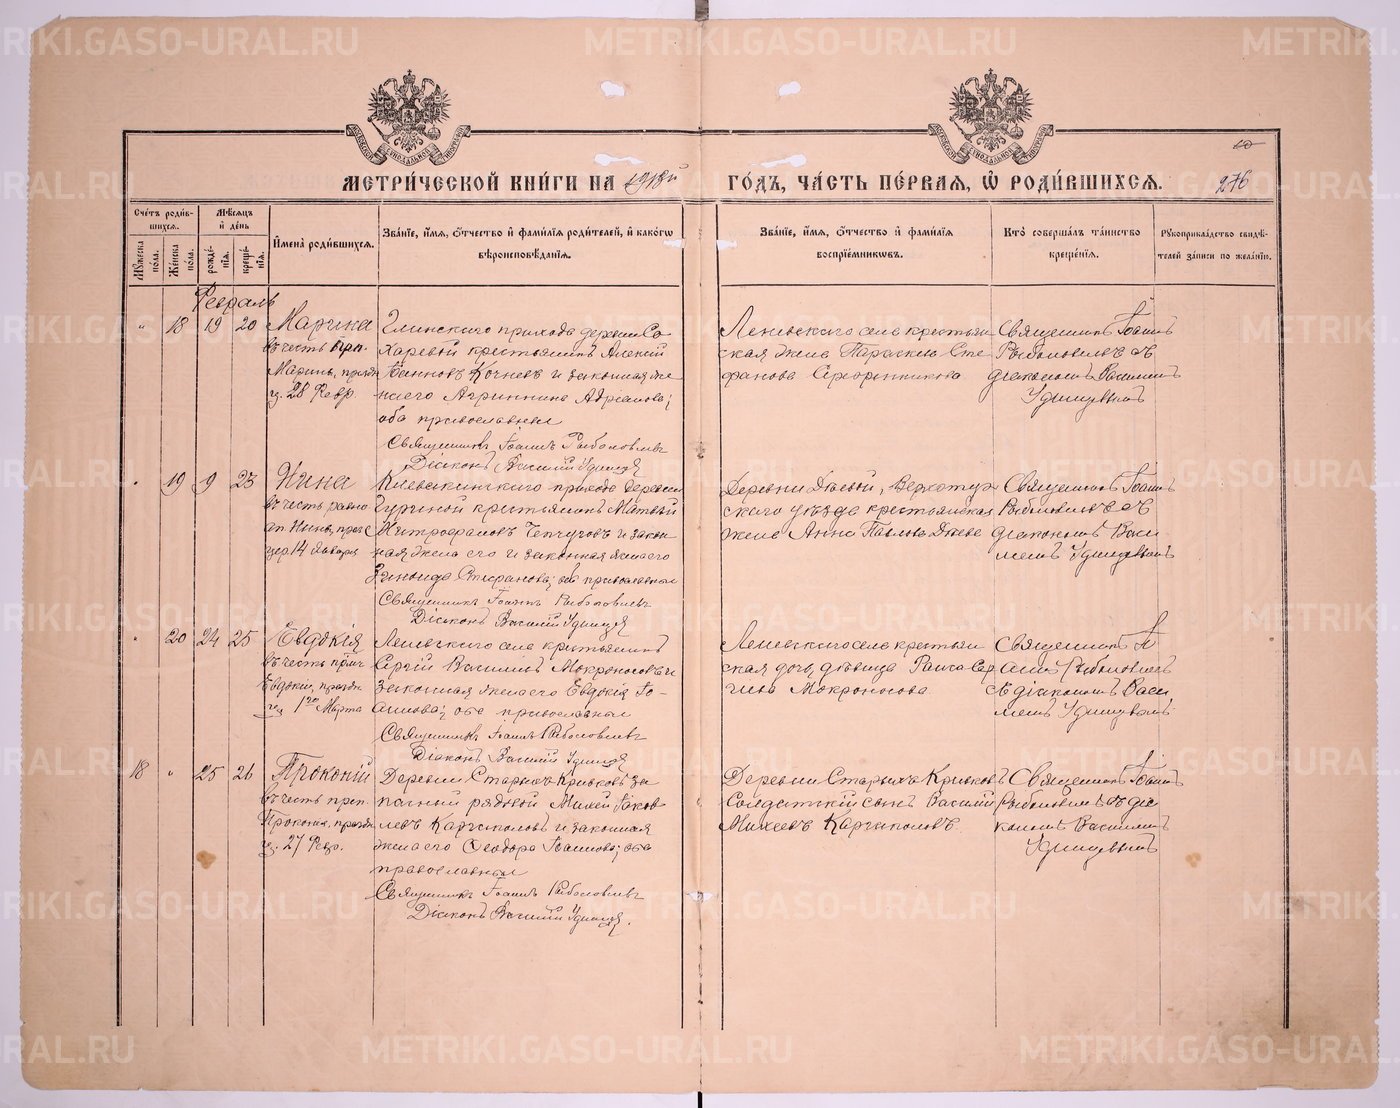 МЕТРИ́ЧЕСКОЙ КНИ́ГИ НА 1918й
ГО́ДЪ, ЧА́СТЬ ПЕ́РВАЯ, Ѽ РОДИ́ВШИХСЯ.
10
276
Сче́тъ роди́в-
шихся.
Мѣ́сяцъ
и҆ де́нь
Му́жеска
по́ла.
Же́нска
по́ла.
рожде́-
нїя.
креще́-
нїя.
И҆мена̀ роди́вшихся.
Зва́нїе, и҆́мя, ѻ҆́тчество и҆ фами́лїя роди́телей, и҆ како́гѡ
вѣроисповѣ́данїя.
Зва́нїе, и҆́мя, ѻ҆́тчество и҆ фами́лїя
воспрїе́мниковъ.
Кто̀ соверша́лъ та́инство
креще́нїя.
Рꙋкоприкла́дство свидѣ́-
телей за́писи по жела́нїю.
Февраль
" 18 19 20 Марина
въ честь прп.
Марины, праздн
28 Февр.
Глинскаго прихода деревни Со-
харевой крестьянинъ Алексій
Кочневъ и законная же-
на его Агриппина Адріанова;
оба православные
Священникъ Іоаннъ Рыболовлевъ
Діаконъ Василій Удинцевъ
Леневскаго села крестьян
ская жена Параскева Сте
фанова Серебренникова
Священникъ Іоаннъ
Рыболовлевъ съ
діакономъ Василіемъ
Удинцевымъ
" 19 9 23 Нина
въ честь равно
ап. Нины, праз
14 Января
прихода деревни
крестьянинъ Матвѣй
Митрофановъ Чепчуговъ и закон-
ная жена его и законная жена его
Зинаида; оба православные
Священникъ Іоаннъ Рыболовлевъ
Діаконъ Василій Удинцевъ
Деревни Дѣевой, Верхотур
скаго уѣзда крестьянская
жена Анна Павлова Дѣева
Священникъ Іоаннъ
Рыболовлевъ съ
діакономъ Васи
ліемъ Удинцевымъ
" 20 24 25 Евдокія
въ честь прмч
Евдокіи, праздн
1го Марта
Леневскаго села крестьянинъ
Сергій Васильевъ Мокроносовъ и
законная жена его Евдокія Іо-
аннова; оба православные
Священникъ Іоаннъ Рыболовлевъ
Діаконъ Василій Удинцевъ
Леневскаго села крестьян
ская дочь, дѣвица Раиса Сер
гіева Мокроносова
Священникъ І
оаннъ Рыболовлевъ
съ діакономъ Васи
ліемъ Удинцевымъ
18 " 25 26 Прокопій
въ честь преп.
Прокопія, праздн
27 Февр.
Деревни Старыхъ Кривковъ за
пасный рядовой Михей Іаков
левъ Каргаполовъ и законная
жена его Ѳеодора Іоаннова; оба
православные
Священникъ Іоаннъ Рыболовлевъ
Діаконъ Василій Удинцевъ.
Деревни Старыхъ Кривковъ
Солдатскій сынъ Василій
Михеевъ Каргаполовъ.
Священникъ Іоаннъ
Рыболовлевъ съ діа
кономъ Василіемъ
Удинцевымъ